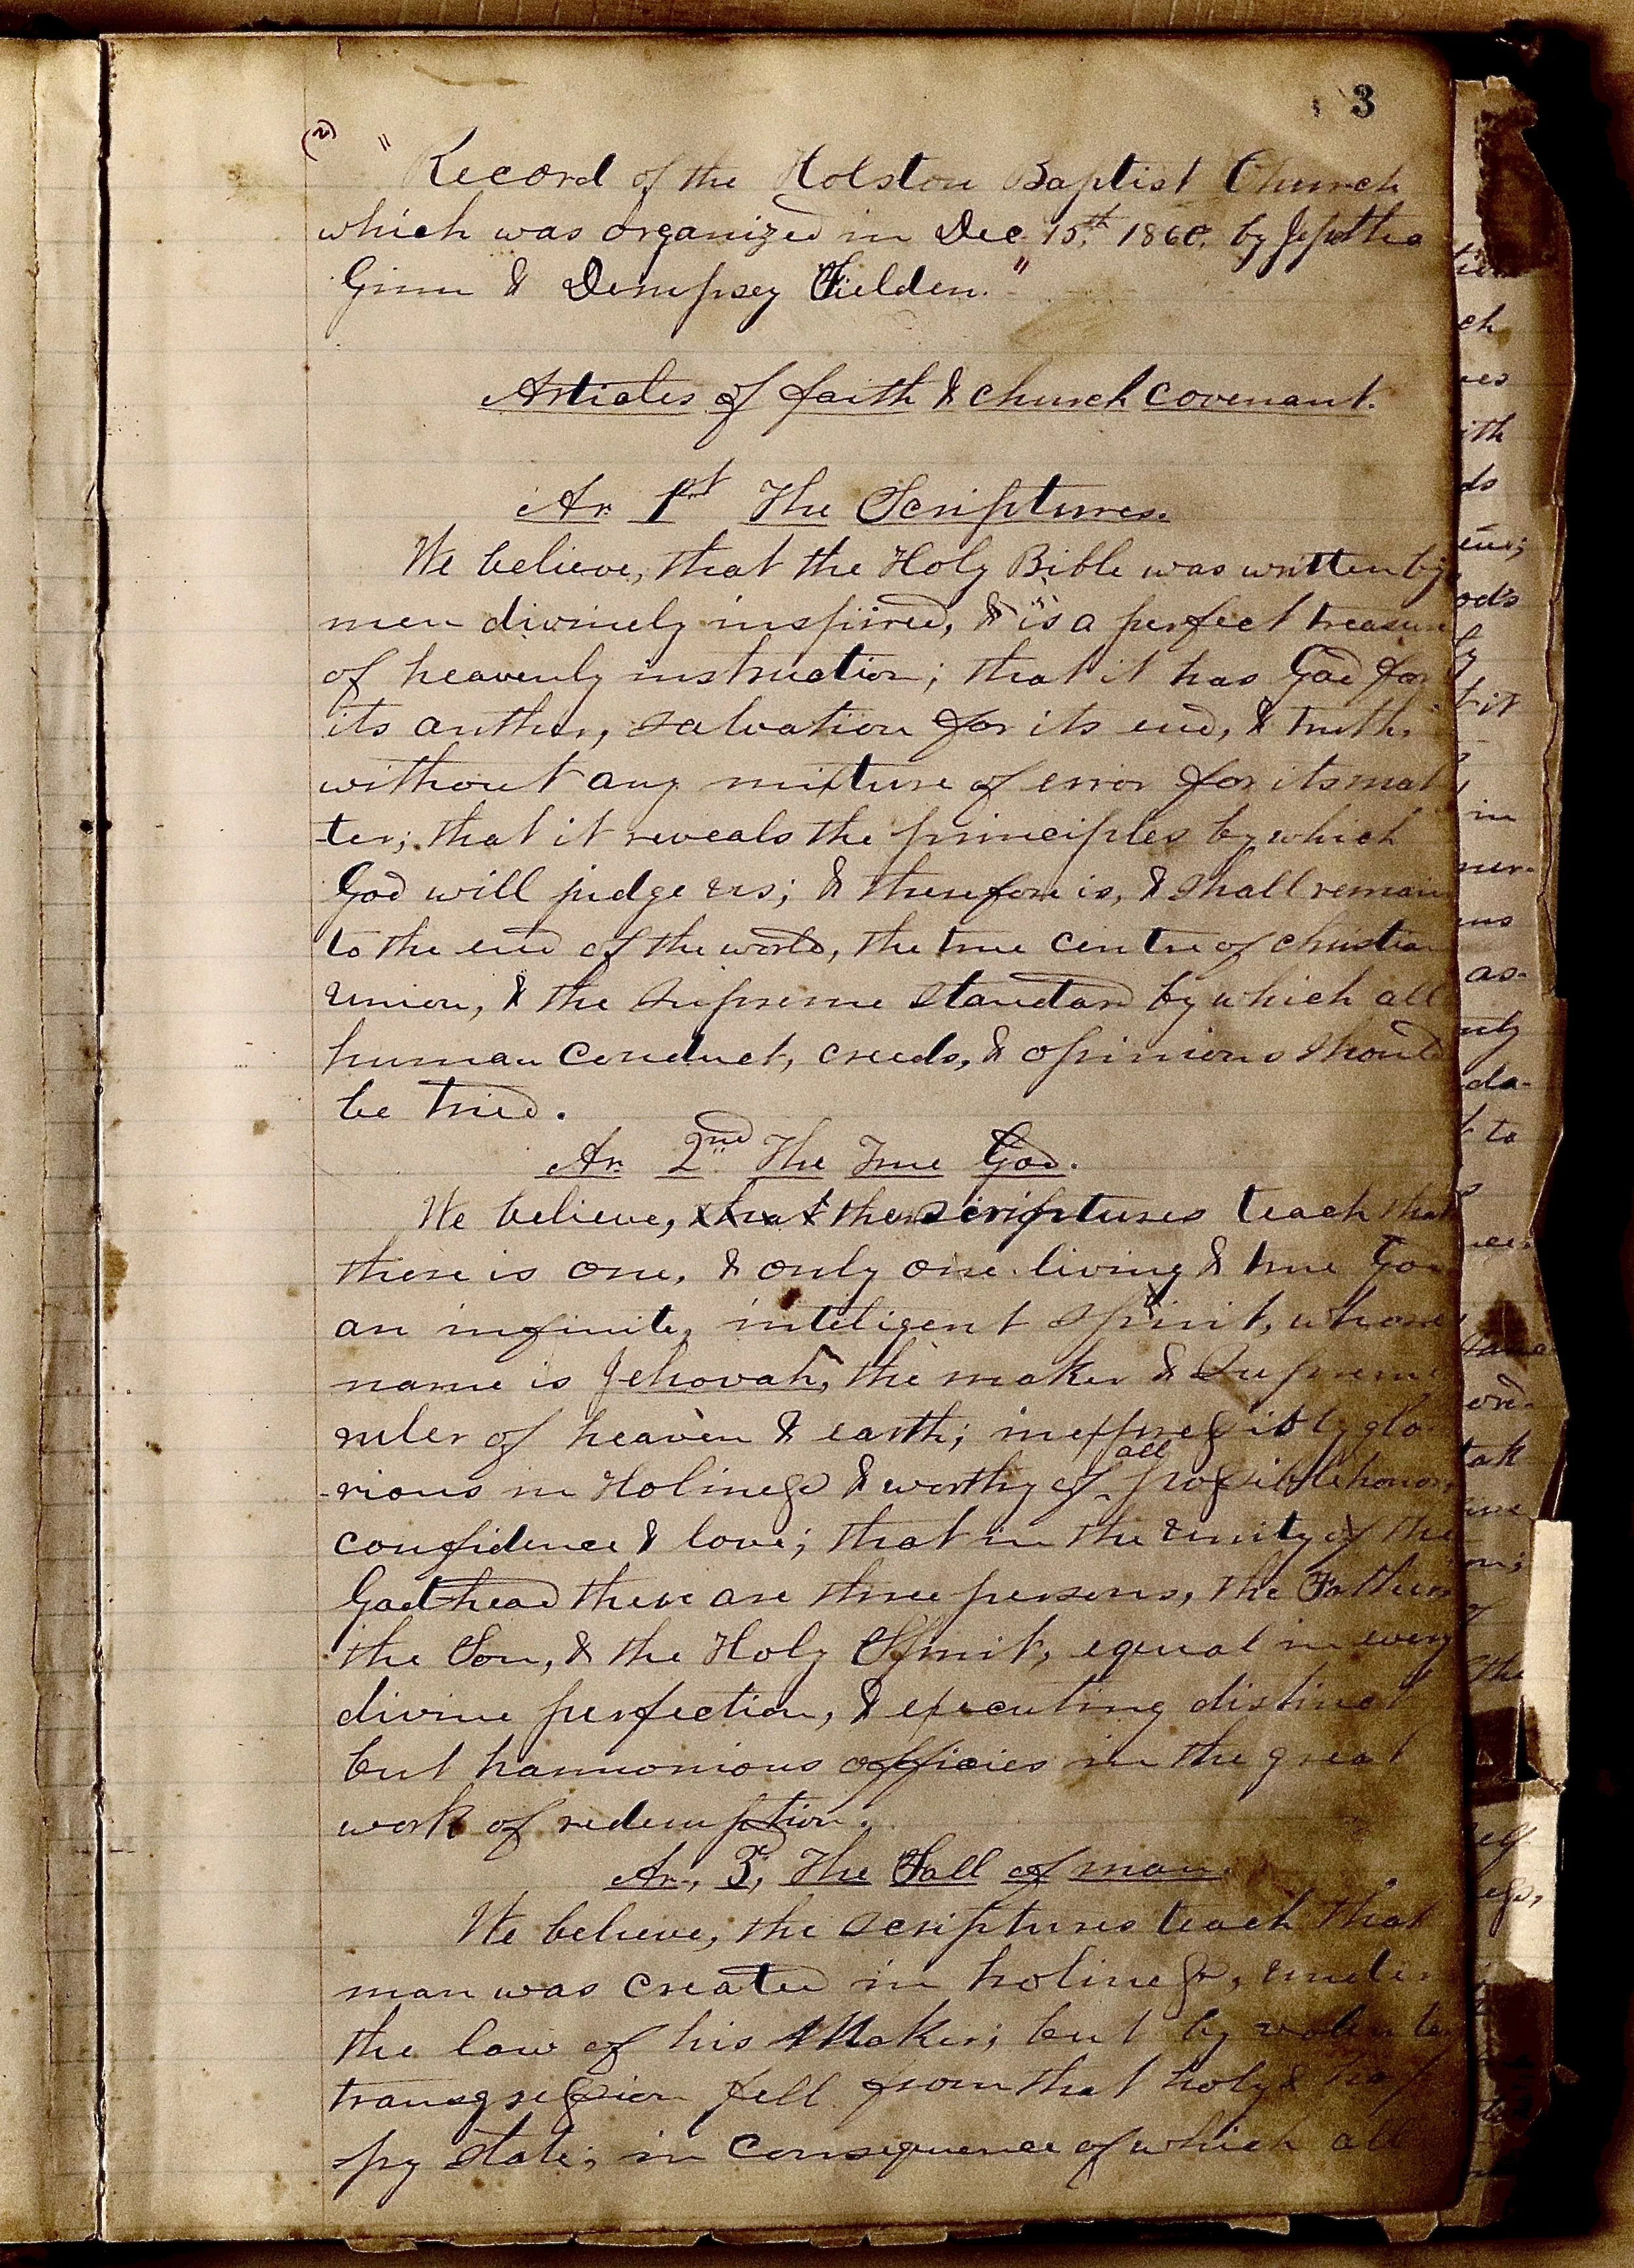 3
(2)
" Record of the Holston Baptist Church
which was organized in Dec. 15th, 1860, by Jeptha
Ginn & Dempsey Fielden."
Articles of faith & church covenant.
Ar. 1st The Scriptures.
We believe, that the Holy Bible was written by
men divinely inspired, & is a perfect treasure
of heavenly instruction; that it has God for
its author, salvation for its end, & truth,
without any mixture of error for its mat
-ter; that it reveals the principles by which
God will judge us; & therefore is, & shall remain
to the end of the world, the true centre of christian
union, & the supreme standard by which all
human conduct, creeds, & opinions should
be tried.
Ar. 2nd The True God.
We believe, that the scriptures teach that
there is one, & only one living & true God
an infinite, inteligent spirit, whose
name is Jehovah, the maker & Supreme
ruler of heaven & earth; inexpressibly glo
-rious in Holiness & worthy of all possible honor,
confidence & love; that in the unity of the
Godhead there are three persons, the Father
the Son, & the Holy Spirit, equal in every
divine perfection, & executing distinct
but harmonious officies in the great
work of redemption.
Ar. 3, The Fall of man.
We believe, the scriptures teach that
man was created in holiness, under
the law of his Maker; but by
transgression fell from that holy & hap
py state; in consequence of which all